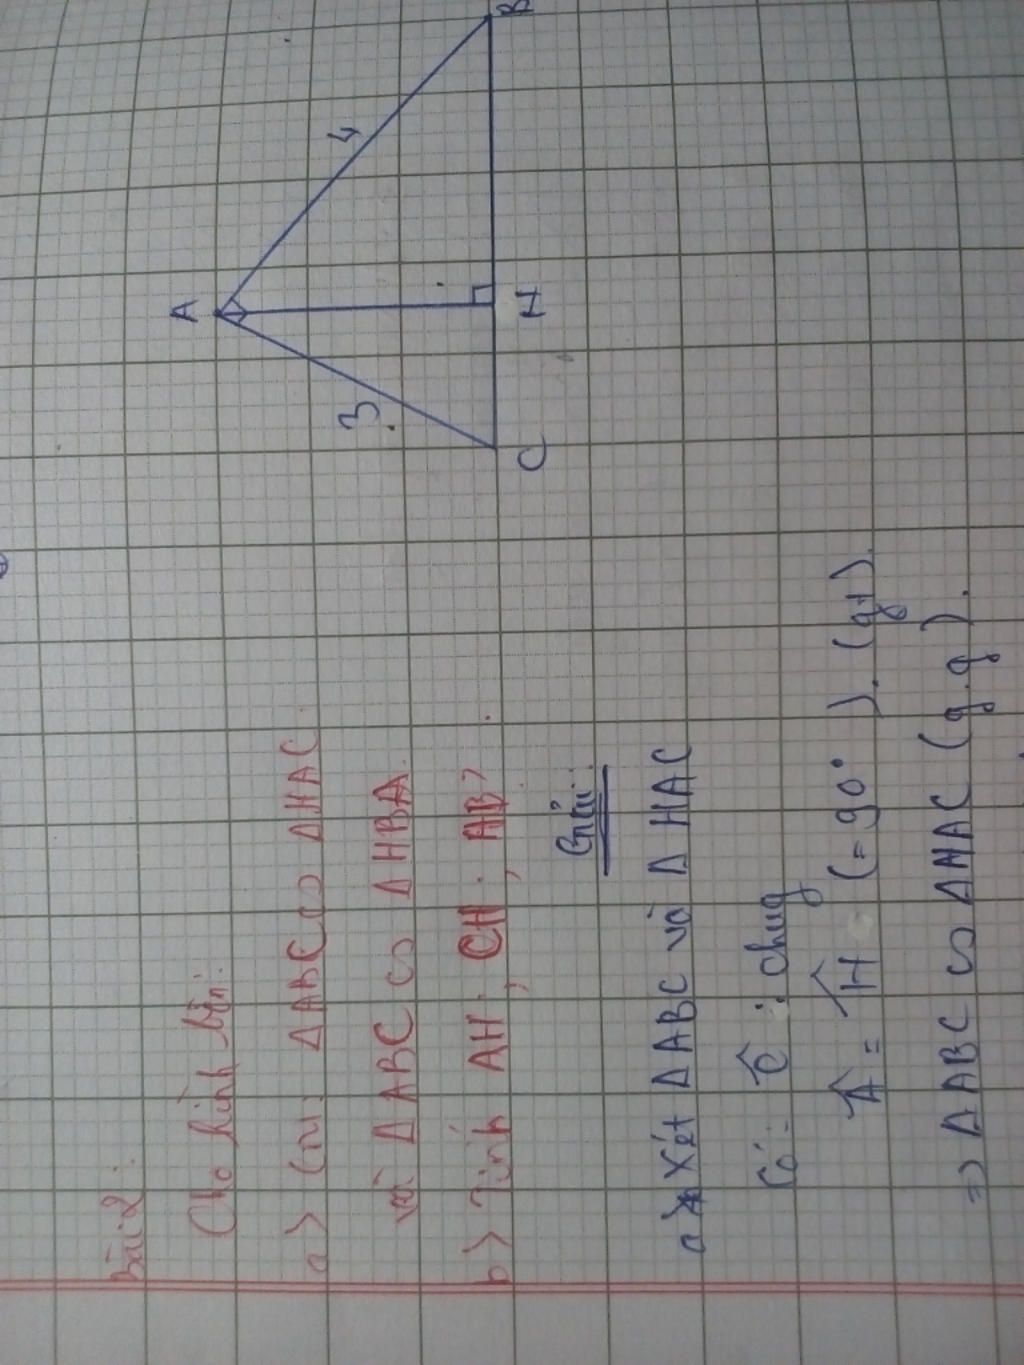 Bài 2:
Cho hình bên:
a> Cm: ΔABC ∽ ΔHAC
và ΔABC ∽ ΔHBA.
b> Tính AH; CH; AB?
Giải:
a> Xét ΔABC và ΔHAC
Có: Ĉ : chung
Â = Ĥ (= 90° ). (gt).
=> ΔABC ∽ ΔHAC (g.g).
A
4
3
B
C
H